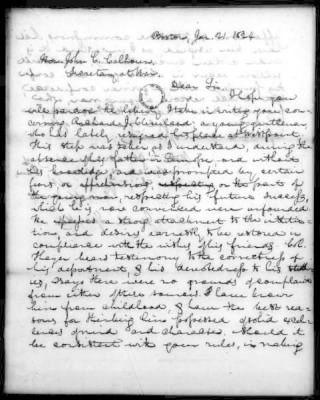 Boston, Jan. 21. 1824
Hon. John C. Calhoun,
Secretary at War.
Dear Sir,
I hope you
will pardon the liberty I take in writing you, con-
cerning Richard J. Cleveland a young gentleman,
who has lately resigned his place at West point.
This step was taken as I understand, during the
absence of his father in Europe and without
his knowledge, and was prompted by certain
fears, or apprehensions, on the part of
the young man, respecting his future success,
which he is now convinced were unfounded.
He a strong attachment to the institu-
tion, and desires earnestly to be restored in
compliance with the wishes of his friends. Col.
Thayer bears testimony to the correctness of
his department, & his devotedness to his studi-
es, & says there were no grounds of complaint
from either of these sources. I have known
him from childhood, & have the best rea-
sons for thinking him possessed of solid excel-
lences of mind and character. Should it
be consistent with your rules, in making